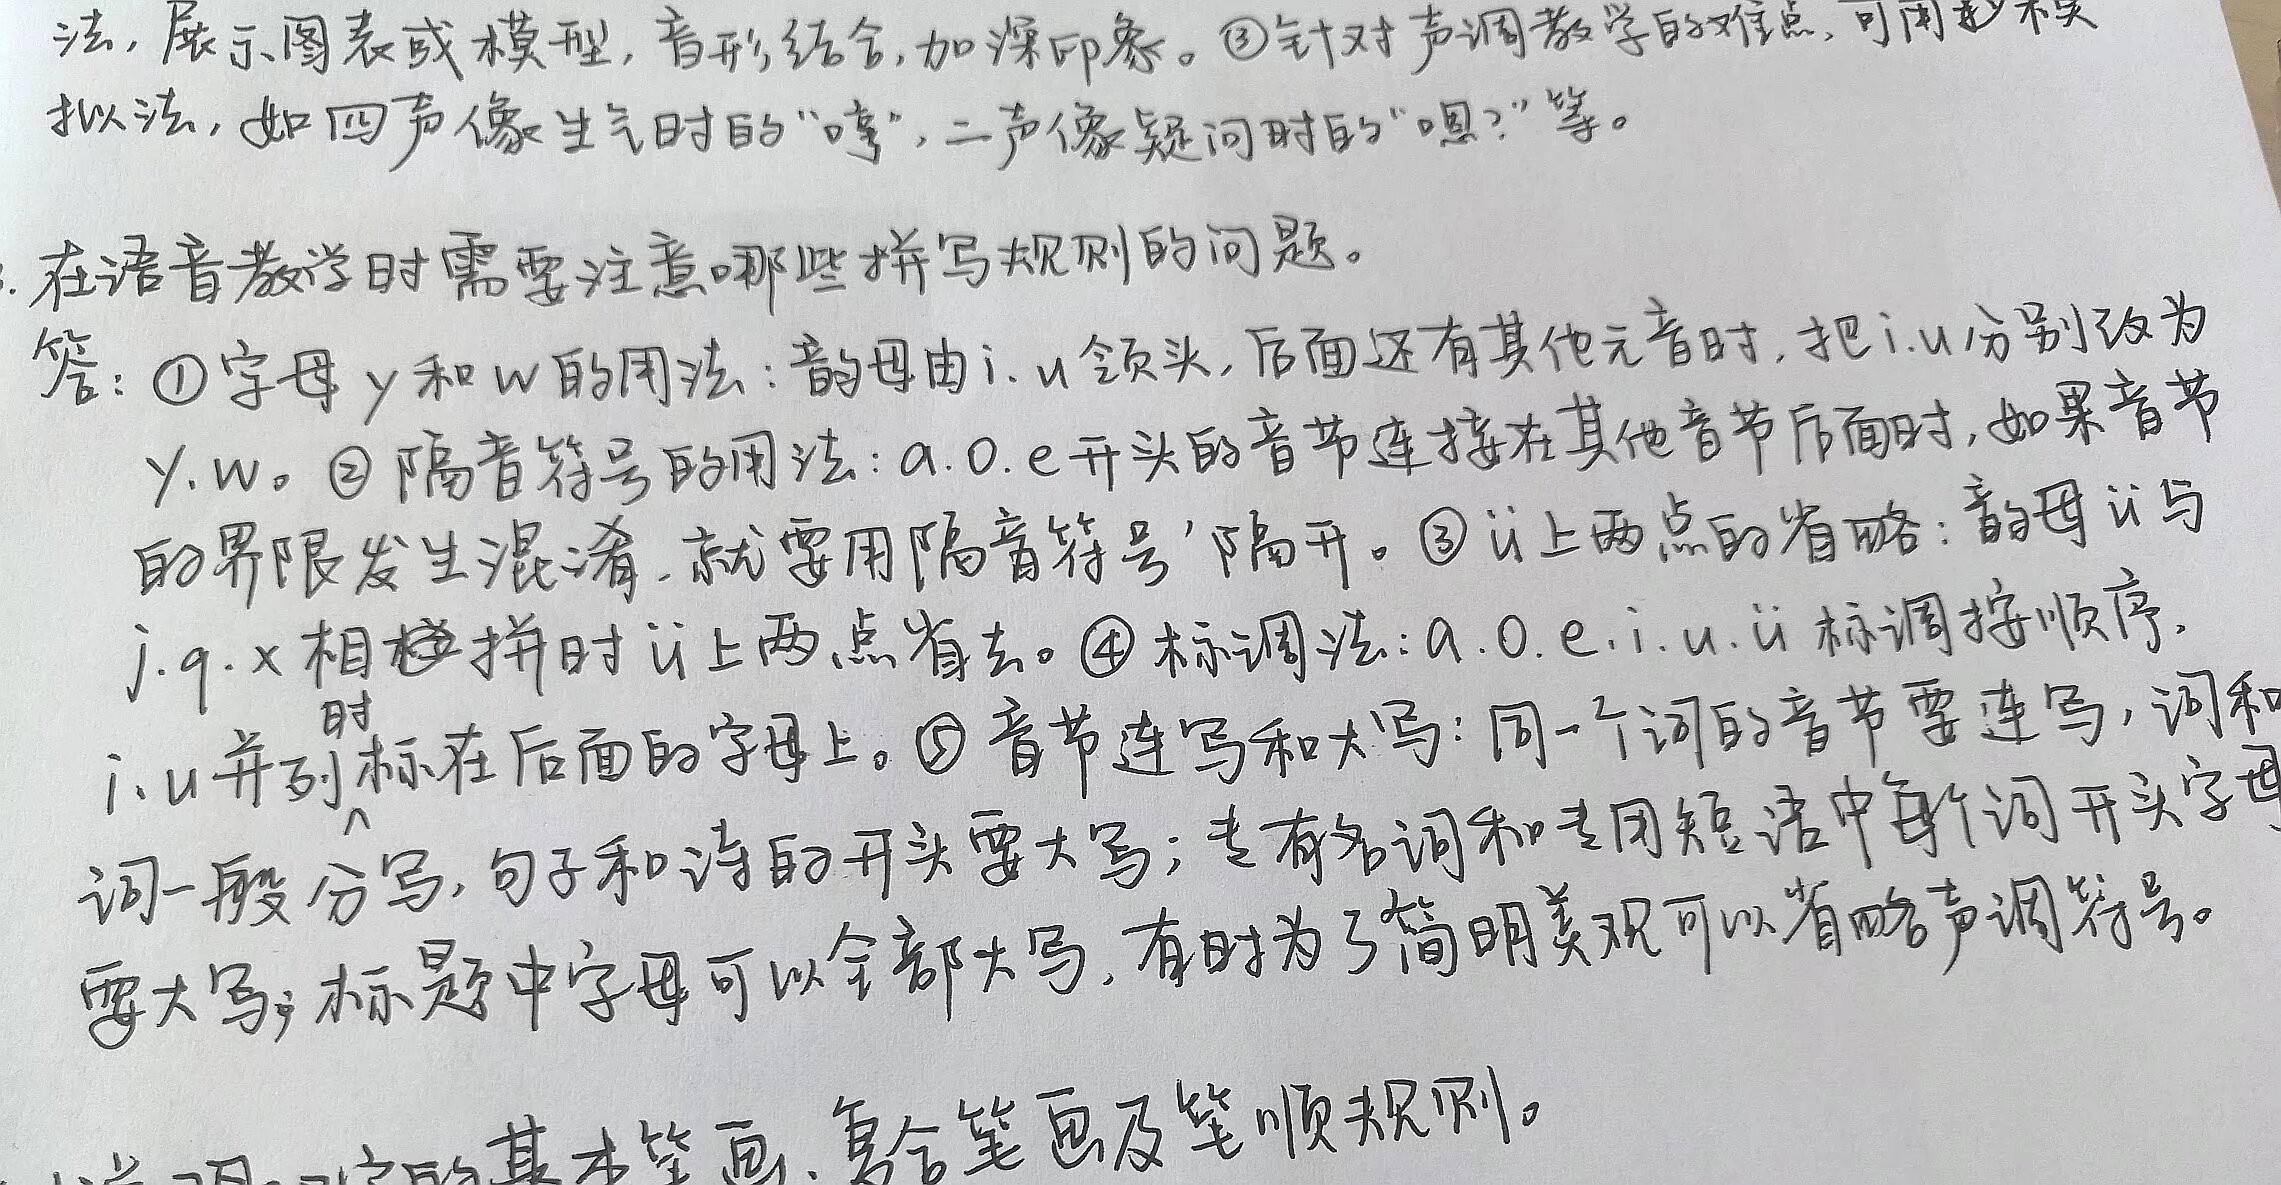 法，展示图表或模型，音形结合，加深印象。③针对声调教学的难点，可用模
拟法，如四声像生气时的“哼”，二声像疑问时的“嗯？”等。
在语音教学时需要注意哪些拼写规则的问题。
答：①字母y和w的用法：韵母由i.u领头，后面还有其他元音时，把i.u分别改为
y.w。②隔音符号的用法：a.o.e开头的音节连接在其他音节后面时，如果音节
的界限发生混淆，就要用隔音符号'隔开。③ü上两点的省略：韵母ü与
j.q.x相拼时ü上两点省去。④标调法：a.o.e.i.u.ü标调按顺序，
i、u并列时标在后面的字母上。⑤音节连写和大写：同一个词的音节要连写，词和
词一般分写，句子和诗的开头要大写；专有名词和专用短语中每个词开头字母
要大写；标题中字母可以全部大写，有时为了简明美观可以省略声调符号。
的基本笔画、复合笔画及笔顺规则。